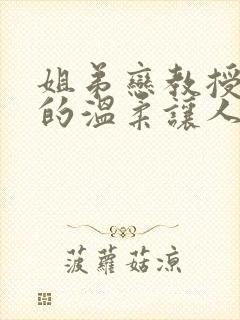 姐弟戀教授
的溫柔讓人
菠蘿菇涼